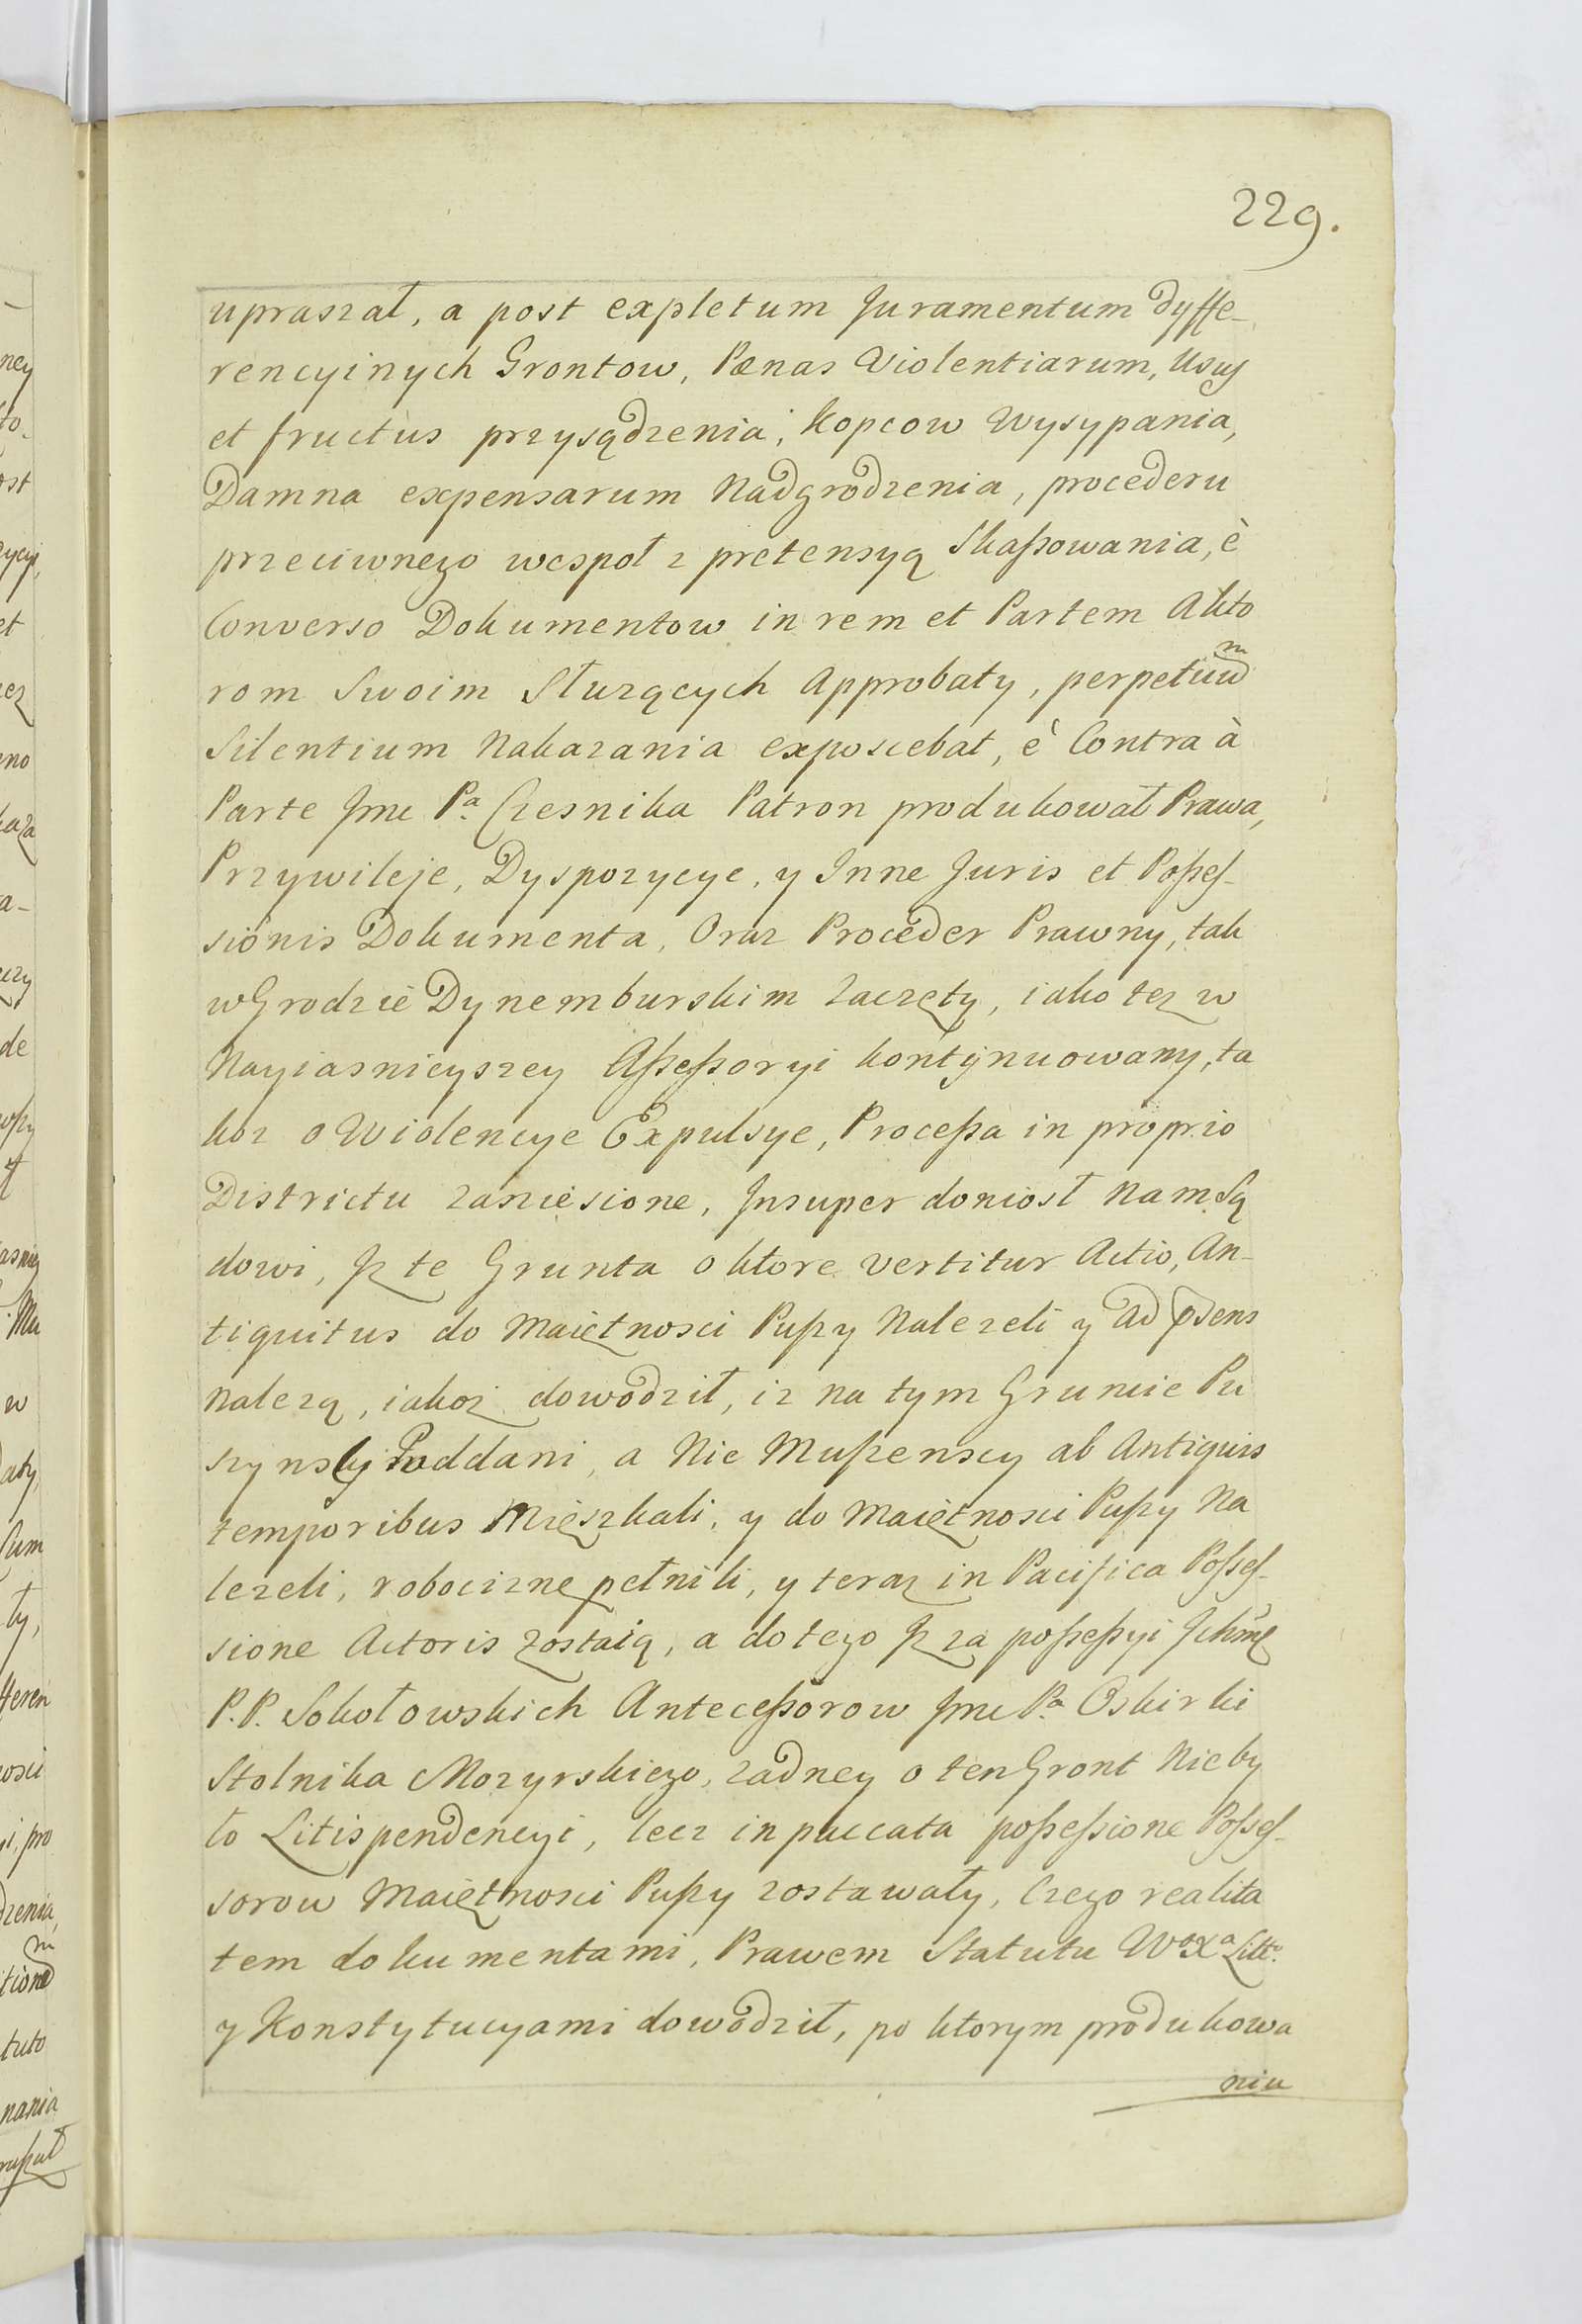 229.
upraszał, a post expletum Juramentum dyffe-
rencyinych Grontow, Pænas Violentiarum, usus
et fructus przysądzenia, kopcow wysypania,
Damna expensarum nadgrodzenia, procederu
przeciwnego wespoł z pretensyą skaſsowania, è
Converso Dokumentow in rem et Partem Akto
rom swoim słuzących approbaty, perpetuum
Silentium nakazania exposcebat, è Contra à
Parte Jmc Pa. Czesnika Patron produkował Prawa,
Przywileje, Dyspozycye, y Inne Juris et Poſseſ-
sionis Dokumenta, Oraz Proceder Prawny, tak
w Grodzie Dynemburskim zaczęty, iako tez w
Nayiasnieyszey Aſseſsoryi kontynuowany, ta
koz o Wiolencye Expulsye, Proceſsa in proprio
Districtu zaniesione, Insuper doniosł nam Są
dowi, Jz te Grunta o ktore vertitur Actio, An-
tiquitus do Maiętnosci Puſzy Nalezeli y ad pdens
nalezą, iakoz dowodził, iz na tym Gruncie Pu
szynscy Poddani, a Nie Muſzenscy ab Antiquis
temporibus Mieszkali, y do Maiętnosci Puſzy Na
lezeli, robocizne pełnili, y teraz in Pacifica Poſseſ-
sione Actoris zostaią, a do tego Jz za poſseſsyi Jchmc
P.P. Sokołowskich Anteceſsorow Jmc Pa. Oskirki
Stolnika Mozyrskiego, zadney o ten Gront Nie by
ło Litispendencyi, lecz in paccata poſseſsione Poſseſ-
sorow Maiętnosci Puſzy zostawały, Czego realita
tem dokumentami, Prawem Statutu Wo Xa Litto.
y Konstytucyami dowodził, po ktorym produkowa
niu